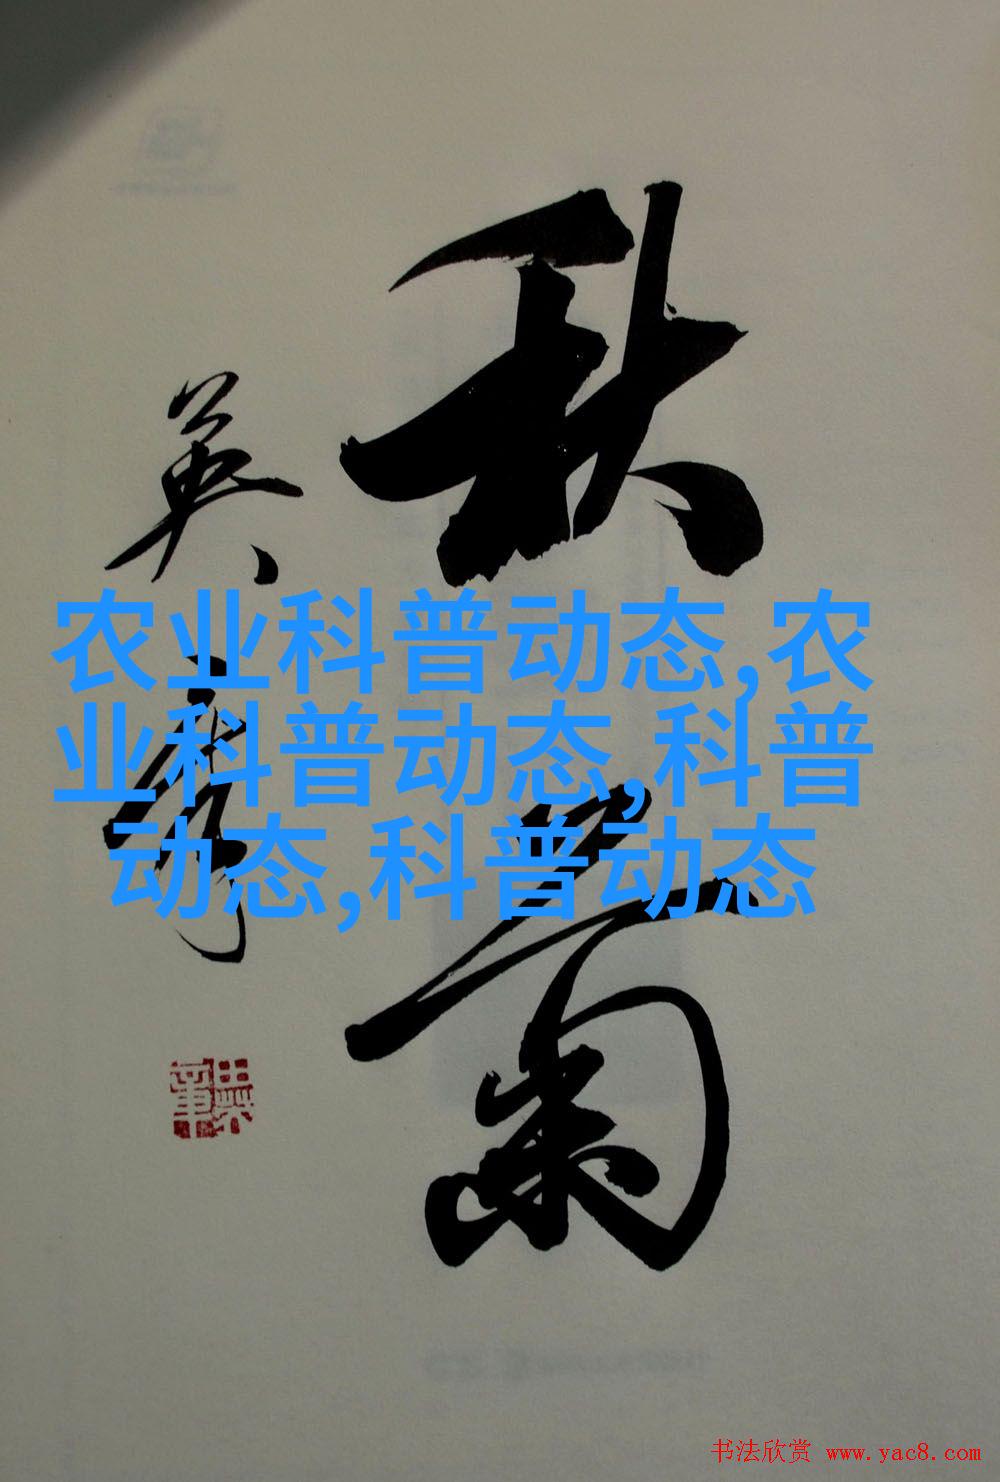 秋菊
英章
农业科普动态,农
业科普动态,科普
动态,科普动态
书法欣赏 www.yac8.com